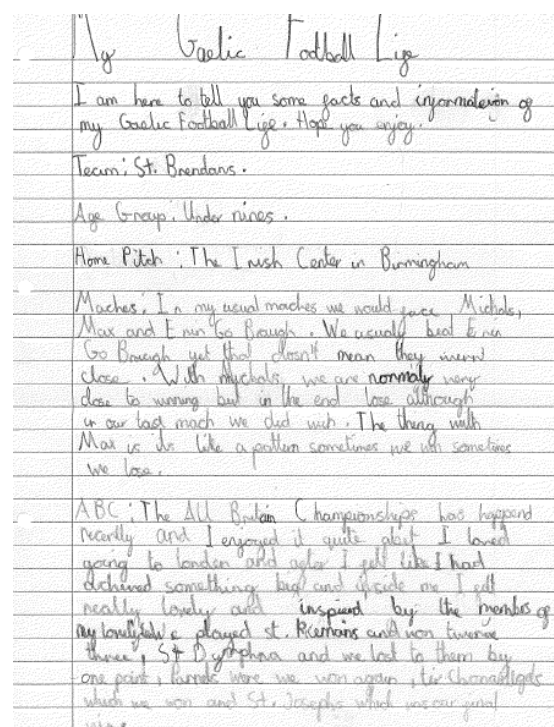 My Gaelic Football Life
I am here to tell you some facts and information of
my Gaelic Football Life. Hope you enjoy.
Team: St. Brendans.
Age Group: Under nines.
Home Pitch: The Irish Center in Birmingham
Maches: In my usual maches we would face Michols,
Max and Erin Go Brough. We usualy beat Erin
Go Brough yet that doesn't mean they
close. With Mychols, we are normaly very
close to winning but in the end lose although
in our last mach we did wich. The thing with
Max is its like a pattern sometimes we win sometimes
we lose.
ABC: The All Britain Championships has happend
recently and I enjoyed it quite abit I loved
going to london and after I felt like I had
achived something big and inside me I felt
really lovely and inspired by the membrs of
my played st. Kiernans and won
three, St Dymphna and we lost to them by
one point, were we won again, tir Chonaill
which we won and St. Josephs which was our final